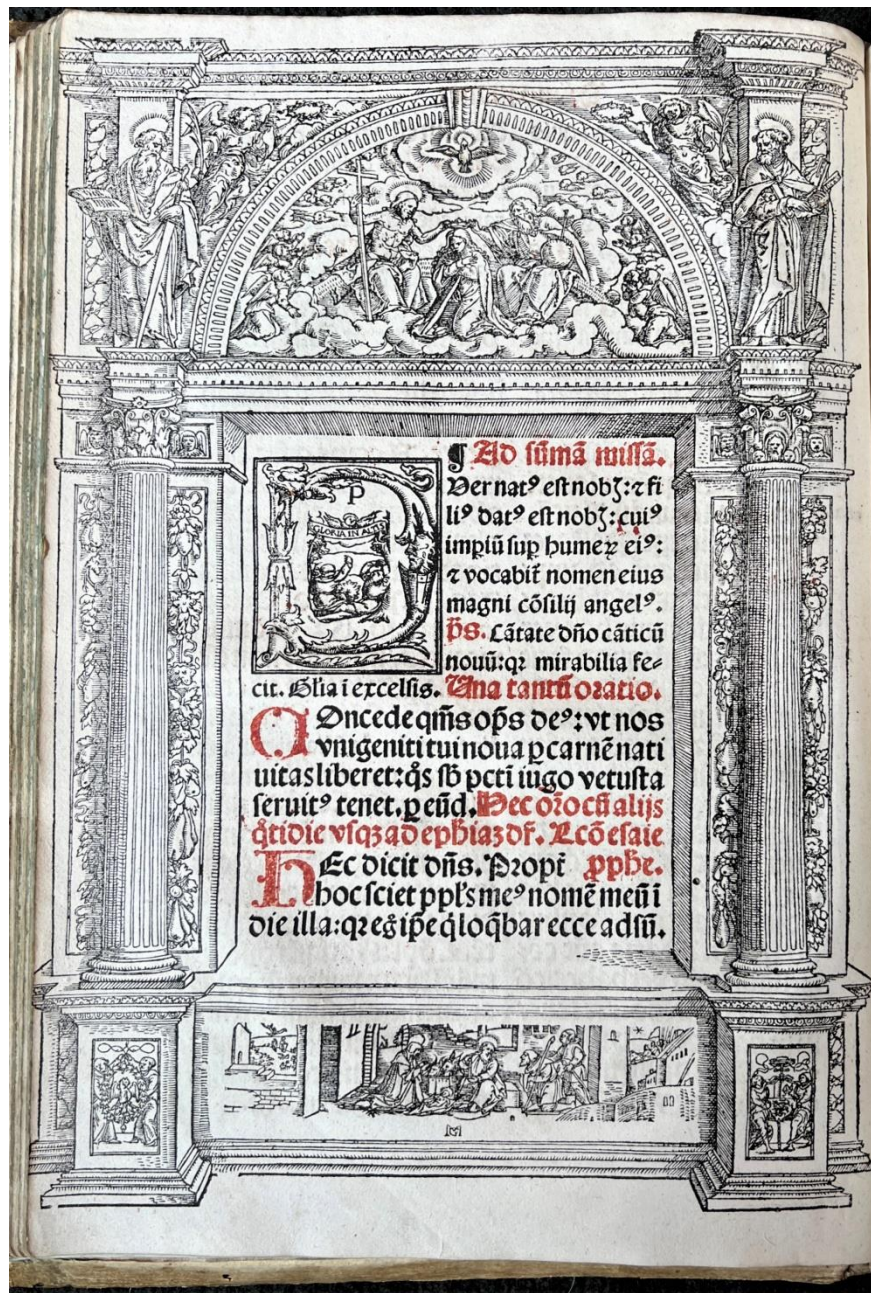 ¶ Ad sũmã missã.
P
GLORIA IN AL
Uer natꝰ est nobꝫ: ⁊ fi
liꝰ datꝰ est nobꝫ: cuiꝰ
imꝑiũ suꝑ humeꝝ eiꝰ:
⁊ vocabit̃ nomen eius
magni cõsilij angelꝰ.
p̃s. Cãtate dño cãticũ
nouũ: qꝛ mirabilia fe-
cit. Gl̃ia i excelsis. Una tantũ oratio.
COncede qm̃s op̃s deꝰ: vt nos
vnigeniti tui noua ꝑ carnẽ nati
uitas liberet: q̃s sb̃ pctĩ iugo vetusta
seruitꝰ tenet. ꝑ eũd. Hec or̃o cũ alijs
q̃tidie vsqꝫ ad eph̃iaꝫ df̃. Lcõ esaie
HEc dicit dñs. Propt̃ ꝓph̃e.
hoc sciet ppl̃s meꝰ nomẽ meũ i
die illa: qꝛ eg̃ ip̃e q̃ loq̃bar ecce adsũ.